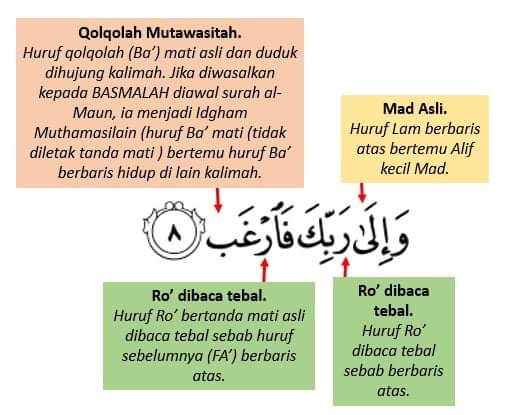 Qolqolah Mutawasitah.
Huruf qolqolah (Ba’) mati asli dan duduk
dihujung kalimah. Jika diwasalkan
kepada BASMALAH diawal surah al-
Maun, ia menjadi Idgham
Muthamasilain (huruf Ba’ mati (tidak
diletak tanda mati ) bertemu huruf Ba’
berbaris hidup di lain kalimah.
Mad Asli.
Huruf Lam berbaris
atas bertemu Alif
kecil Mad.
وَإِلَىٰ رَبِّكَ فَٱرْغَب ٨
Ro’ dibaca tebal.
Huruf Ro’ bertanda mati asli
dibaca tebal sebab huruf
sebelumnya (FA’) berbaris
atas.
Ro’ dibaca
tebal.
Huruf Ro’
dibaca tebal
sebab berbaris
atas.